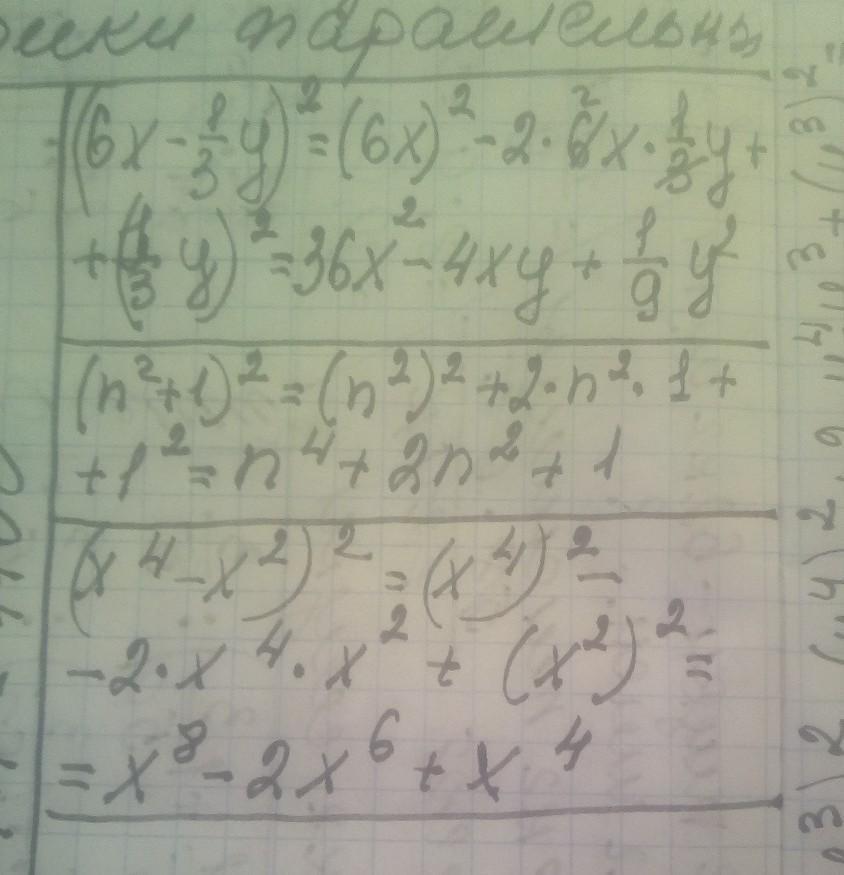 параллельны
(6x - 1/3 y)² = (6x)² - 2 · 6x · 1/3 y +
+ (1/3 y)² = 36x² - 4xy + 1/9 y²
(n² + 1)² = (n²)² + 2 · n² · 1 +
+ 1² = n⁴ + 2n² + 1
(x⁴ - x²)² = (x⁴)² -
- 2 · x⁴ · x² + (x²)² =
= x⁸ - 2x⁶ + x⁴